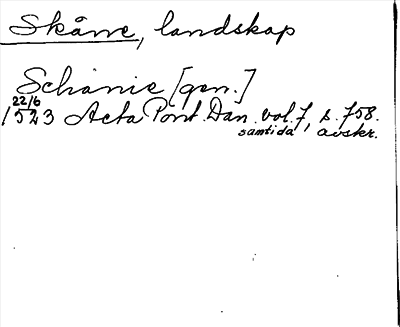 Skåne, landskap
Schanie [gen.]
22/6
1523 Acta Pont. Dan. vol. 7, s. 758.
samtida avskr.